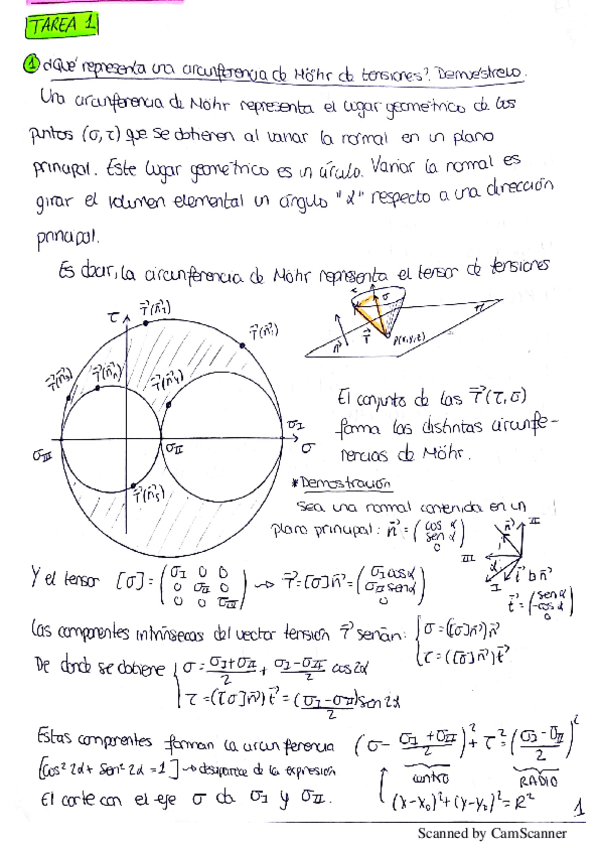 TAREA 1
① ¿Qué representa una circunferencia de Möhr de tensiones?. Demuéstrelo.
Una circunferencia de Möhr representa el lugar geométrico de los
puntos (σ,τ) que se obtienen al variar la normal en un plano
principal. Este lugar geométrico es un círculo. Variar la normal es
girar el volumen elemental un ángulo "α" respecto a una dirección
principal.
Es decir, la circunferencia de Möhr representa el tensor de tensiones
τ
T⃗(n⃗₁)
T⃗(n⃗₄)
T⃗(n⃗₅)
σ
T⃗
n⃗
P(x,y,z)
π
σI
σII
σIII
σ
El conjunto de los T⃗(τ,σ)
forma las distintas circunfe-
rencias de Möhr.
*Demostración
Sea una normal contenida en un
plano principal: n⃗ = (cos α, sen α, 0)
n⃗
II
III
I
α
t⃗ ⊥ n⃗
t⃗ = (sen α, -cos α, 0)
Y el tensor [σ] = (σI 0 0, 0 σII 0, 0 0 σIII) → T⃗ = [σ]n⃗ = (σI cos α, σII sen α, 0)
Las componentes intrínsecas del vector tensión T⃗ serán: { σ = ([σ]n⃗)n⃗
τ = ([σ]n⃗)t⃗
De donde se obtiene { σ = (σI+σII)/2 + (σI-σII)/2 cos 2α
τ = ([σ]n⃗)t⃗ = (σI-σII)/2 sen 2α
Estas componentes forman la circunferencia (σ - (σI+σII)/2)² + τ² = ((σI-σII)/2)²
[cos² 2α + sen² 2α = 1] → desaparece de la expresión
centro
RADIO
El corte con el eje σ da σI y σII.
(x-x₀)² + (y-y₀)² = R²
1
Scanned by CamScanner